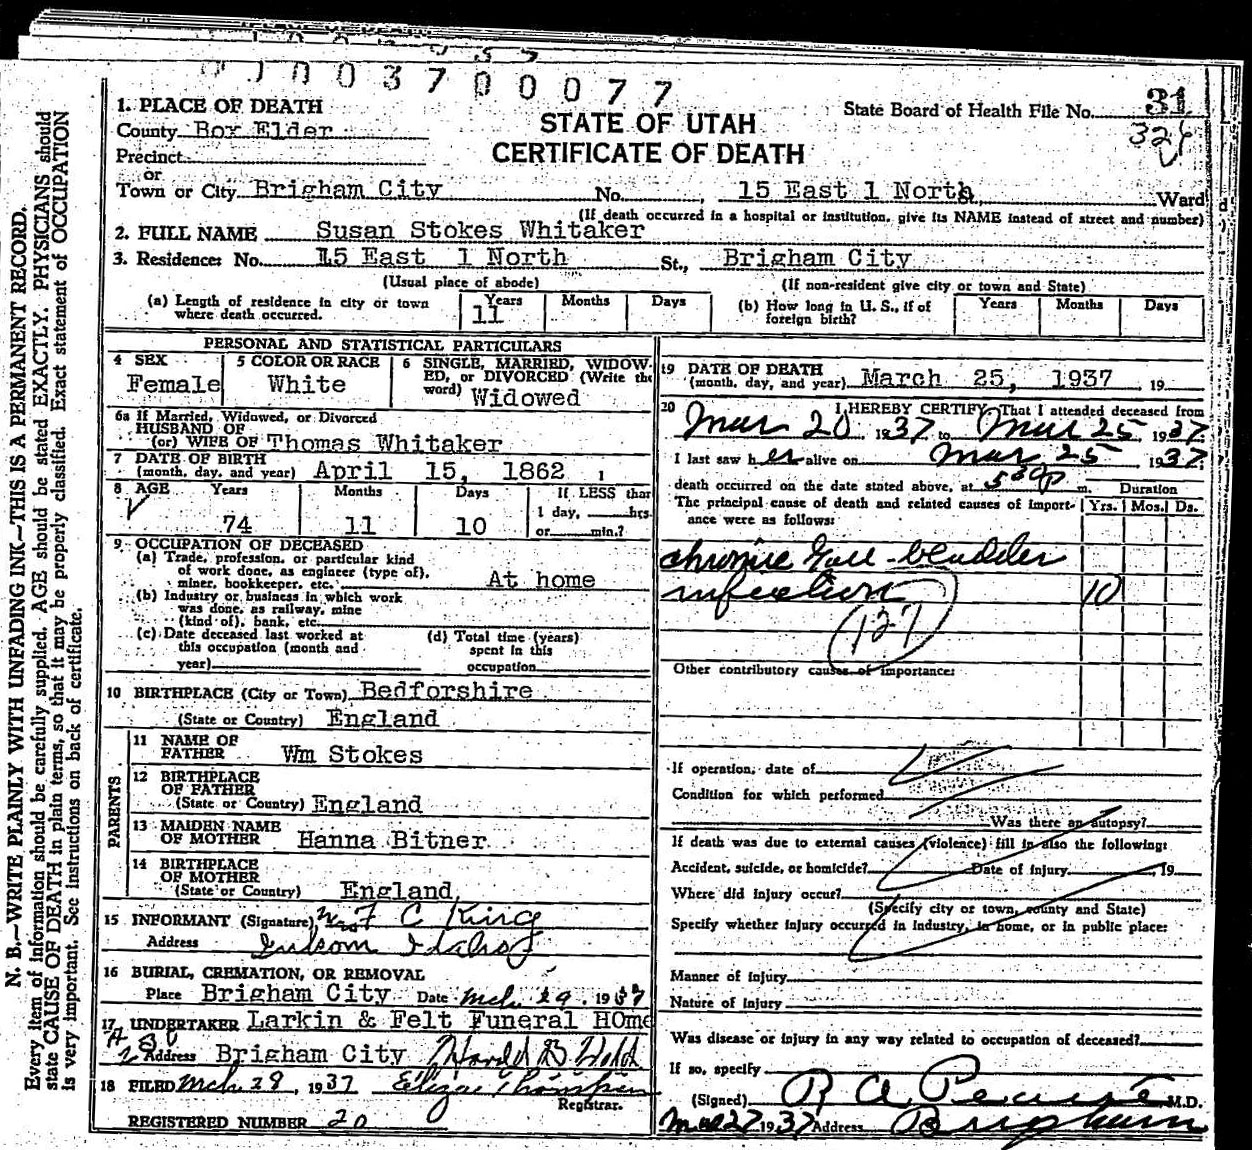 003700077
1. PLACE OF DEATH
County Box Elder
Precinct
or
Town or City Brigham City No. 15 East 1 North, Ward
(If death occurred in a hospital or institution, give its NAME instead of street and number)
STATE OF UTAH
CERTIFICATE OF DEATH
State Board of Health File No. 31
324
2. FULL NAME Susan Stokes Whitaker
3. Residence: No. 15 East 1 North St., Brigham City
(Usual place of abode) (If non-resident give city or town and State)
(a) Length of residence in city or town where death occurred. Years 11 Months Days
(b) How long in U. S., if of foreign birth? Years Months Days
PERSONAL AND STATISTICAL PARTICULARS
4 SEX Female
5 COLOR OR RACE White
6 SINGLE, MARRIED, WIDOWED, or DIVORCED (Write the word) Widowed
6a If Married, Widowed, or Divorced
HUSBAND OF
(or) WIFE OF Thomas Whitaker
7 DATE OF BIRTH
(month, day, and year) April 15, 1862
8 AGE Years 74 Months 11 Days 10 If LESS than 1 day, hrs. or min.?
9 OCCUPATION OF DECEASED
(a) Trade, profession, or particular kind
of work done, as engineer (type of),
miner, bookkeeper, etc. At home
(b) Industry or business in which work
was done, as railway, mine
(kind of), bank, etc.
(c) Date deceased last worked at
this occupation (month and
year)
(d) Total time (years)
spent in this
occupation
10 BIRTHPLACE (City or Town) Bedforshire
(State or Country) England
PARENTS
11 NAME OF
FATHER Wm Stokes
12 BIRTHPLACE
OF FATHER
(State or Country) England
13 MAIDEN NAME
OF MOTHER Hanna Bitner
14 BIRTHPLACE
OF MOTHER
(State or Country) England
15 INFORMANT (Signature) Mrs F C King
Address Idaho
16 BURIAL, CREMATION, OR REMOVAL
Place Brigham City Date Mch. 29, 1937
17 UNDERTAKER Larkin & Felt Funeral HOme
Address Brigham City
18 FILED Mch 28, 1937
Registrar.
REGISTERED NUMBER 20
19 DATE OF DEATH
(month, day, and year) March 25, 1937, 19
20 I HEREBY CERTIFY, That I attended deceased from
Mar 20 1937 to Mar 25 1937.
I last saw her alive on Mar 25 1937.
death occurred on the date stated above, at 530p m. Duration
The principal cause of death and related causes of importance were as follows: Yrs. Mos. Ds.
chronic Gall-bladder
infection 10
127
Other contributory causes of importance:
If operation, date of
Condition for which performed
Was there an autopsy?
If death was due to external causes (violence) fill in also the following:
Accident, suicide, or homicide? Date of injury , 19
Where did injury occur?
(Specify city or town, county and State)
Specify whether injury occurred in industry, in home, or in public place:
Manner of injury
Nature of injury
Was disease or injury in any way related to occupation of deceased?
If so, specify
(Signed) R A Pearse M.D.
Mar 27 1937 Address Brigham
N. B.—WRITE PLAINLY WITH UNFADING INK—THIS IS A PERMANENT RECORD.
Every item of information should be carefully supplied. AGE should be stated EXACTLY. PHYSICIANS should
state CAUSE OF DEATH in plain terms, so that it may be properly classified. Exact statement of OCCUPATION
is very important. See instructions on back of certificate.